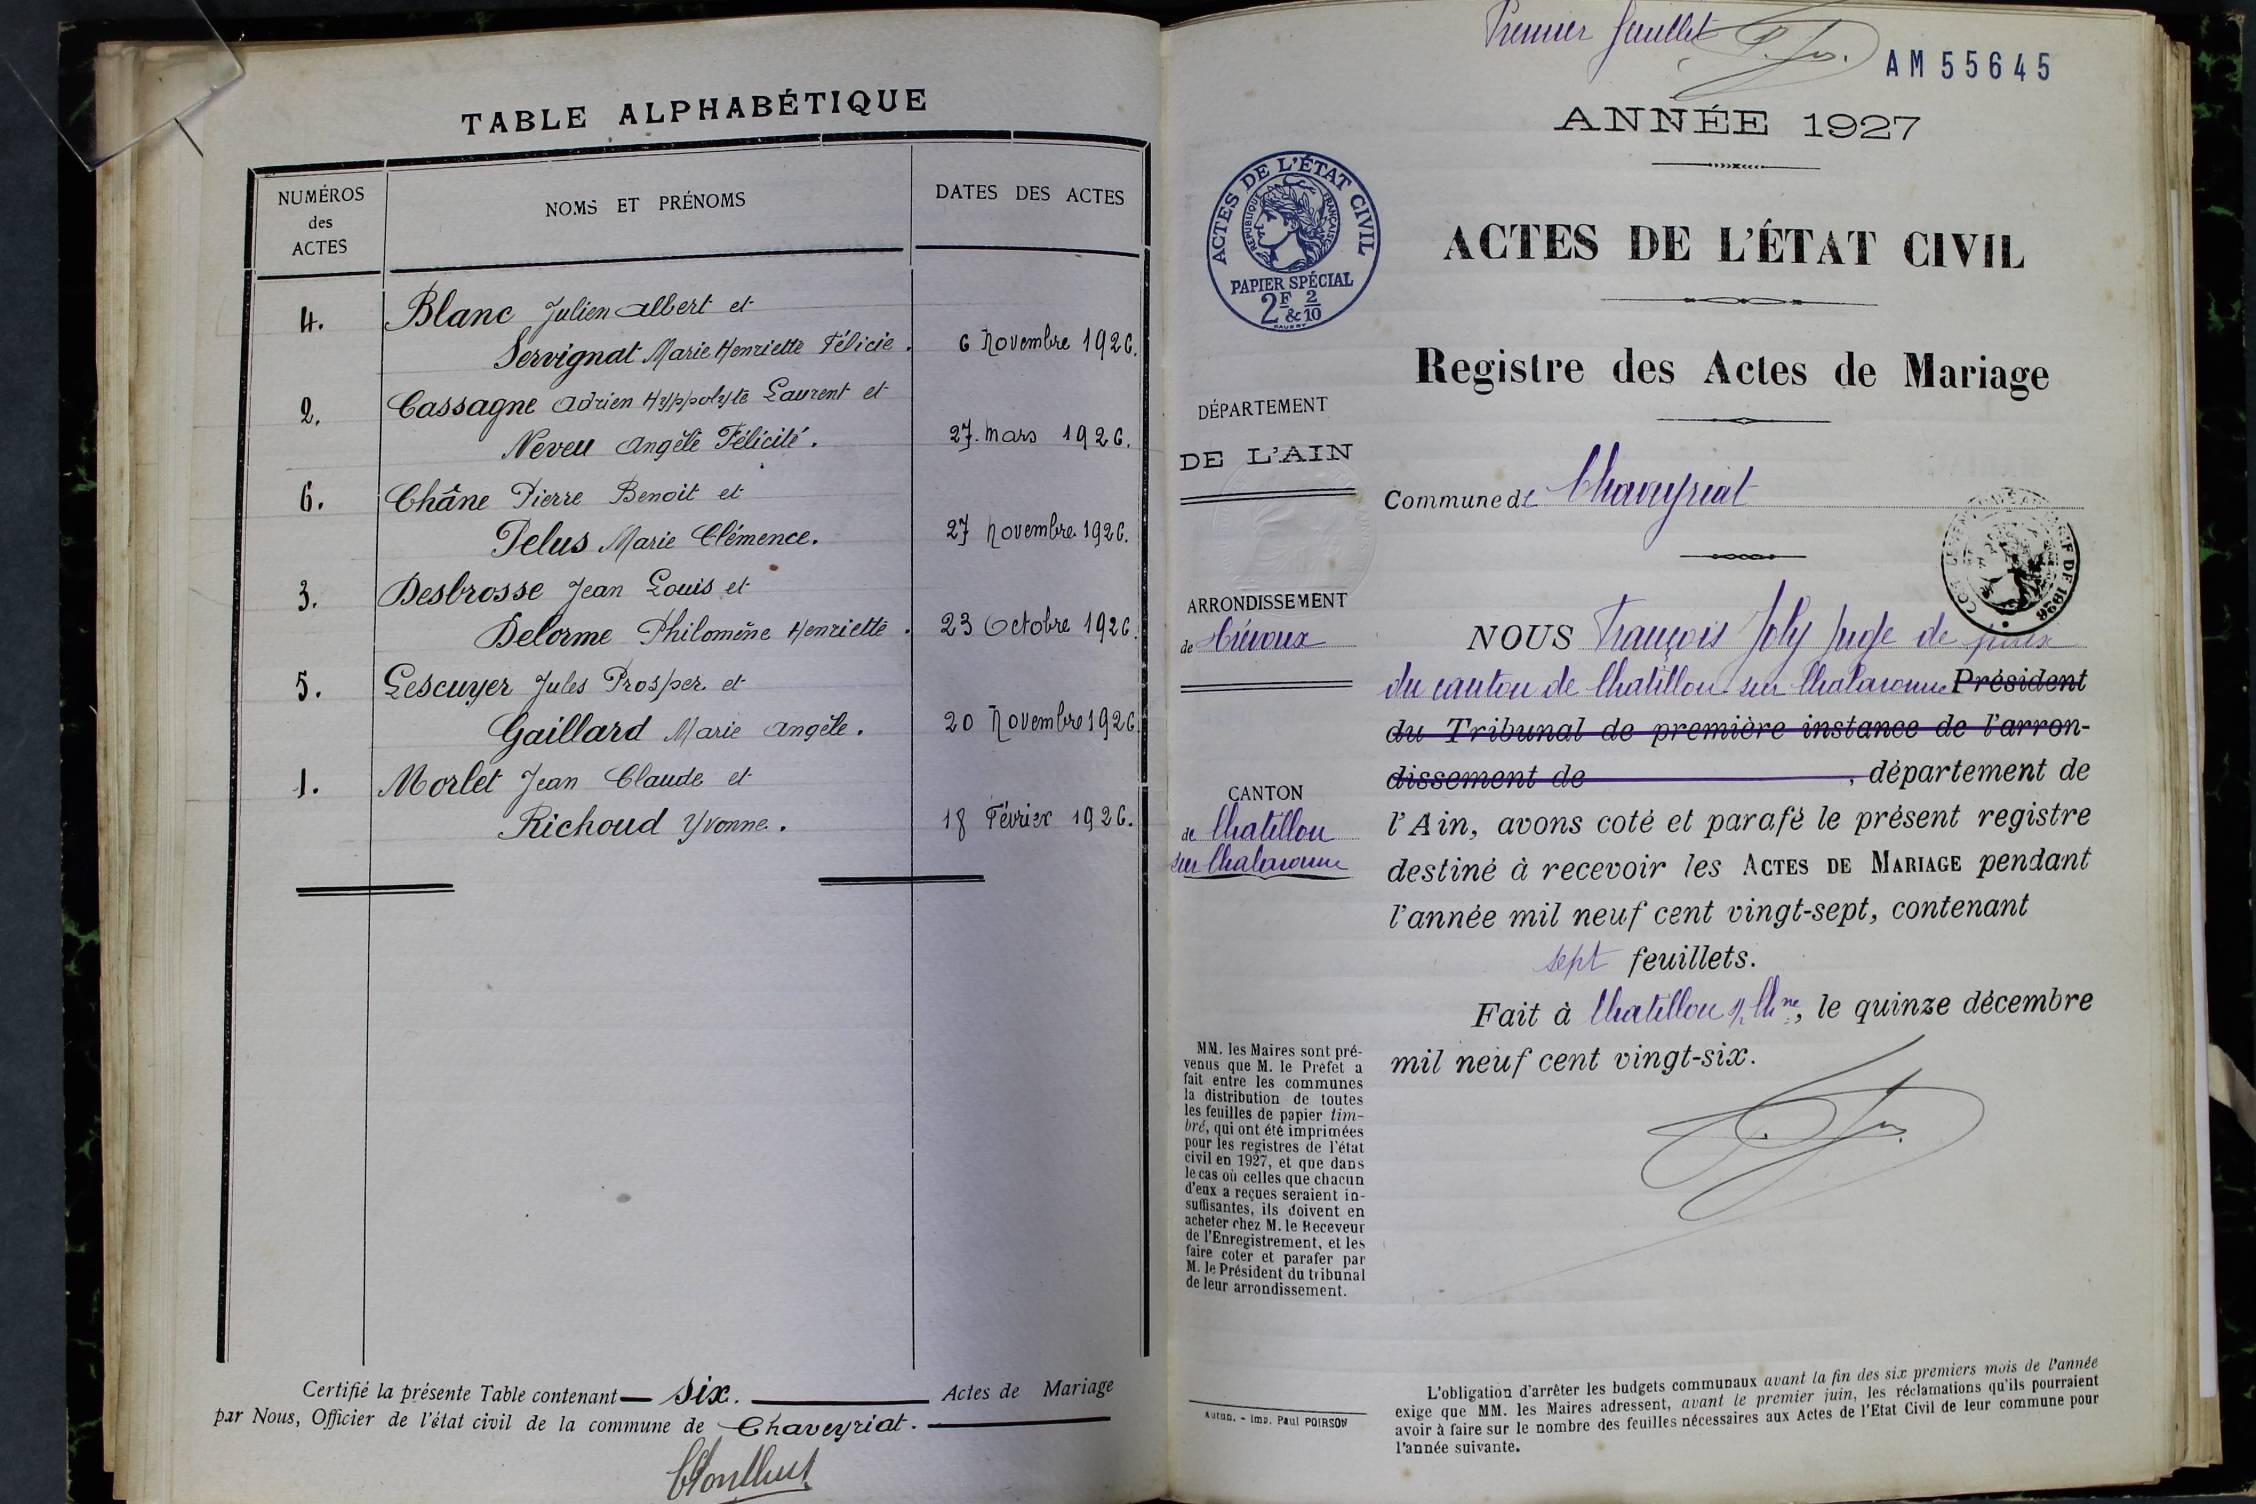 TABLE ALPHABÉTIQUE
NUMÉROS
des
ACTES
NOMS ET PRÉNOMS
DATES DES ACTES
4. Blanc Julien Albert et
Servignat Marie Henriette Félicie. 6 Novembre 1926.
2. Cassagne Adrien Hyppolyte Laurent et
Neveu Angèle Félicité. 27 Mars 1926.
6. Châne Pierre Benoit et
Pelus Marie Clémence. 27 Novembre 1926.
3. Desbrosse Jean Louis et
Delorme Philomène Henriette. 23 Octobre 1926.
5. Lescuyer Jules Prosper et
Gaillard Marie Angèle. 20 Novembre 1926
1. Morlet Jean Claude et
Richoud Yvonne. 18 Février 1926.
Certifié la présente Table contenant six. Actes de Mariage
par Nous, Officier de l'état civil de la commune de Chaveyriat.
Premier feuillet
AM 55645
ANNÉE 1927
ACTES DE L'ÉTAT CIVIL
RÉPUBLIQUE FRANÇAISE
PAPIER SPÉCIAL
2F & 2/10
ACTES DE L'ÉTAT CIVIL
Registre des Actes de Mariage
DÉPARTEMENT
DE L'AIN
Commune de Chaveyriat
ARRONDISSEMENT
de Trévoux
CANTON
de Chatillon
sur Chalaronne
NOUS François Joly Juge de paix
du canton de Chatillon sur Chalaronne Président
du Tribunal de première instance de l'arron-
dissement de , département de
l'Ain, avons coté et parafé le présent registre
destiné à recevoir les ACTES DE MARIAGE pendant
l'année mil neuf cent vingt-sept, contenant
sept feuillets.
Fait à Chatillon s/ Chne, le quinze décembre
mil neuf cent vingt-six.
MM. les Maires sont pré-
venus que M. le Préfet a
fait entre les communes
la distribution de toutes
les feuilles de papier tim-
bré, qui ont été imprimées
pour les registres de l'état
civil en 1927, et que dans
le cas où celles que chacun
d'eux a reçues seraient in-
suffisantes, ils doivent en
acheter chez M. le Receveur
de l'Enregistrement, et les
faire coter et parafer par
M. le Président du tribunal
de leur arrondissement.
Autun. - Imp. Paul POIRSON
L'obligation d'arrêter les budgets communaux avant la fin des six premiers mois de l'année
exige que MM. les Maires adressent, avant le premier juin, les réclamations qu'ils pourraient
avoir à faire sur le nombre des feuilles nécessaires aux Actes de l'Etat Civil de leur commune pour
l'année suivante.